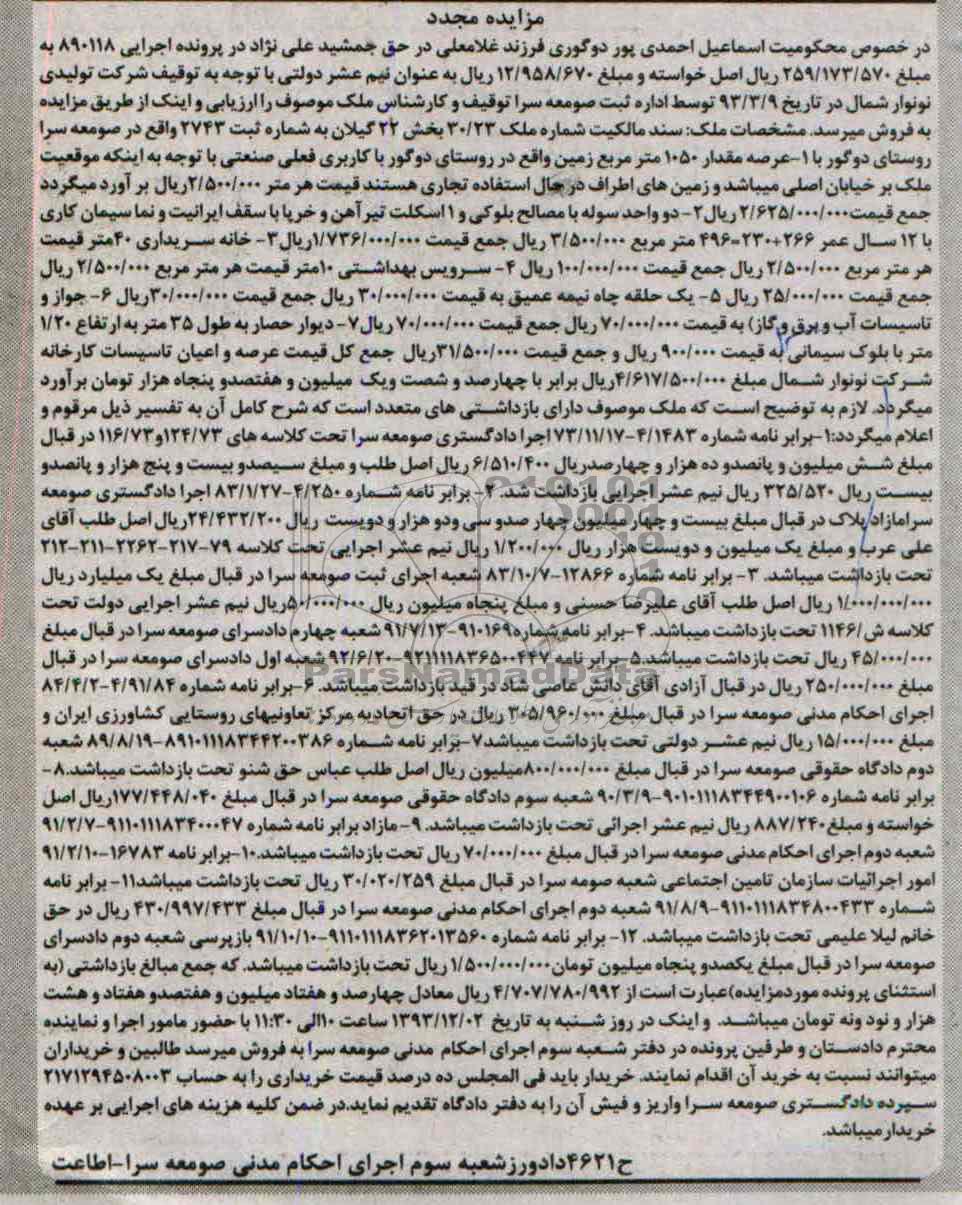 مزایده مجدد
در خصوص محکومیت اسماعیل احمدی پور دوگوری فرزند غلامعلی در حق جمشید علی نژاد در پرونده اجرایی ۸۹۰۱۱۸ به
مبلغ ۲۵۹/۱۷۳/۵۷۰ ریال اصل خواسته و مبلغ ۱۲/۹۵۸/۶۷۰ ریال به عنوان نیم عشر دولتی با توجه به توقیف شرکت تولیدی
نونوار شمال در تاریخ ۹۳/۳/۹ توسط اداره ثبت صومعه سرا توقیف و کارشناس ملک موصوف را ارزیابی و اینک از طریق مزایده
به فروش میرسد. مشخصات ملک: سند مالکیت شماره ملک ۳۰/۲۳ بخش ۲۲ گیلان به شماره ثبت ۲۷۴۳ واقع در صومعه سرا
روستای دوگور با ۱-عرصه مقدار ۱۰۵۰ متر مربع زمین واقع در روستای دوگور با کاربری فعلی صنعتی با توجه به اینکه موقعیت
ملک بر خیابان اصلی میباشد و زمین های اطراف در حال استفاده تجاری هستند قیمت هر متر ۲/۵۰۰/۰۰۰ریال بر آورد میگردد
جمع قیمت۲/۶۲۵/۰۰۰/۰۰۰ ریال۲- دو واحد سوله با مصالح بلوکی و ۱ اسکلت تیر آهن و خرپا با سقف ایرانیت و نما سیمان کاری
با ۱۲ سال عمر ۲۶۶+۲۳۰=۴۹۶ متر مربع ۳/۵۰۰/۰۰۰ ریال جمع قیمت ۱/۷۳۶/۰۰۰/۰۰۰ریال۳- خانه سریداری ۴۰متر قیمت
هر متر مربع ۲/۵۰۰/۰۰۰ ریال جمع قیمت ۱۰۰/۰۰۰/۰۰۰ ریال ۴- سرویس بهداشتی ۱۰متر قیمت هر متر مربع ۲/۵۰۰/۰۰۰ ریال
جمع قیمت ۲۵/۰۰۰/۰۰۰ ریال ۵- یک حلقه چاه نیمه عمیق به قیمت ۳۰/۰۰۰/۰۰۰ ریال جمع قیمت ۳۰/۰۰۰/۰۰۰ریال ۶- جواز و
تاسیسات آب و برق و گاز) به قیمت ۷۰/۰۰۰/۰۰۰ ریال جمع قیمت ۷۰/۰۰۰/۰۰۰ ریال۷- دیوار حصار به طول ۳۵ متر به ارتفاع ۱/۲۰
متر با بلوک سیمانی به قیمت ۹۰۰/۰۰۰ ریال و جمع قیمت ۳۱/۵۰۰/۰۰۰ریال جمع کل قیمت عرصه و اعیان تاسیسات کارخانه
شرکت نونوار شمال مبلغ ۴/۶۱۷/۵۰۰/۰۰۰ریال برابر با چهارصد و شصت ویک میلیون و هفتصدو پنجاه هزار تومان برآورد
میگردد. لازم به توضیح است که ملک موصوف دارای بازداشتی های متعدد است که شرح کامل آن به تفسیر ذیل مرقوم و
اعلام میگردد:۱-برابر نامه شماره ۷۳/۱۱/۱۷-۴/۱۴۸۳ اجرا دادگستری صومعه سرا تحت کلاسه های ۱۲۴/۷۳و۱۱۶/۷۳ در قبال
مبلغ شش میلیون و پانصدو ده هزار و چهارصدریال ۶/۵۱۰/۴۰۰ ریال اصل طلب و مبلغ سیصدو بیست و پنج هزار و پانصدو
بیست ریال ۳۲۵/۵۲۰ ریال نیم عشر اجرایی بازداشت شد. ۲- برابر نامه شماره ۴/۲۵۰-۸۳/۱/۲۷ اجرا دادگستری صومعه
سرامازاد پلاک در قبال مبلغ بیست و چهار میلیون چهار صدو سی ودو هزار و دویست ریال ۲۴/۴۳۲/۲۰۰ریال اصل طلب آقای
علی عرب و مبلغ یک میلیون و دویست هزار ریال ۱/۲۰۰/۰۰۰ ریال نیم عشر اجرایی تحت کلاسه ۷۹-۲۱۷-۲۲۶۲-۲۱۱-۲۱۲
تحت بازداشت میباشد. ۳- برابر نامه شماره ۱۲۸۶۶-۸۳/۱۰/۷ شعبه اجرای ثبت صومعه سرا در قبال مبلغ یک میلیارد ریال
۱/۰۰۰/۰۰۰/۰۰۰ ریال اصل طلب آقای علیرضا حسنی و مبلغ پنجاه میلیون ریال ۵۰/۰۰۰/۰۰۰ریال نیم عشر اجرایی دولت تحت
کلاسه ش/۱۱۴۶ تحت بازداشت میباشد. ۴-برابر نامه شماره۹۱۰۱۶۹-۹۱/۷/۱۳ شعبه چهارم دادسرای صومعه سرا در قبال مبلغ
۴۵/۰۰۰/۰۰۰ ریال تحت بازداشت میباشد.۵-برابر نامه ۹۲۱۱۱۱۸۳۶۵۰۰۴۴۷-۹۲/۶/۲۰ شعبه اول دادسرای صومعه سرا در قبال
مبلغ ۲۵۰/۰۰۰/۰۰۰ ریال در قبال آزادی آقای دانش عاصی شاد در قید بازداشت میباشد. ۶-برابر نامه شماره ۴/۹۱/۸۴-۸۴/۴/۲
اجرای احکام مدنی صومعه سرا در قبال مبلغ ۳۰۵/۹۶۰/۰۰۰ ریال در حق اتحادیه مرکز تعاونیهای روستایی کشاورزی ایران و
مبلغ ۱۵/۰۰۰/۰۰۰ ریال نیم عشر دولتی تحت بازداشت میباشد۷-برابر نامه شماره ۸۹۱۰۱۱۱۸۳۴۴۲۰۰۳۸۶-۸۹/۸/۱۹ شعبه
دوم دادگاه حقوقی صومعه سرا در قبال مبلغ ۸۰۰/۰۰۰/۰۰۰میلیون ریال اصل طلب عباس حق شنو تحت بازداشت میباشد.۸-
برابر نامه شماره ۹۰۱۰۱۱۱۸۳۴۴۹۰۰۱۰۶-۹۰/۳/۹ شعبه سوم دادگاه حقوقی صومعه سرا در قبال مبلغ ۱۷۷/۴۴۸/۰۴۰ریال اصل
خواسته و مبلغ۸۸۷/۲۴۰ ریال نیم عشر اجرائی تحت بازداشت میباشد. ۹- مازاد برابر نامه شماره ۹۱۱۰۱۱۱۸۳۴۰۰۰۴۷-۹۱/۲/۷
شعبه دوم اجرای احکام مدنی صومعه سرا در قبال مبلغ ۷۰/۰۰۰/۰۰۰ ریال تحت بازداشت میباشد.۱۰-برابر نامه ۱۶۷۸۳-۹۱/۲/۱۰
امور اجرائیات سازمان تامین اجتماعی شعبه صومه سرا در قبال مبلغ ۳۰/۰۲۰/۲۵۹ ریال تحت بازداشت میباشد۱۱- برابر نامه
شماره ۹۱۱۰۱۱۱۸۳۴۸۰۰۴۳۳-۹۱/۸/۹ شعبه دوم اجرای احکام مدنی صومعه سرا در قبال مبلغ ۴۳۰/۹۹۷/۴۳۳ ریال در حق
خانم لیلا علیمی تحت بازداشت میباشد. ۱۲- برابر نامه شماره ۹۱۱۰۱۱۱۸۳۶۲۰۱۳۵۶۰-۹۱/۱۰/۱۰ بازپرسی شعبه دوم دادسرای
صومعه سرا در قبال مبلغ یکصدو پنجاه میلیون تومان۱/۵۰۰/۰۰۰/۰۰۰ ریال تحت بازداشت میباشد. که جمع مبالغ بازداشتی (به
استثنای پرونده موردمزایده)عبارت است از ۴/۷۰۷/۷۸۰/۹۹۲ ریال معادل چهارصد و هفتاد میلیون و هفتصدو هفتاد و هشت
هزار و نود ونه تومان میباشد. و اینک در روز شنبه به تاریخ ۱۳۹۳/۱۲/۰۲ ساعت ۱۰الی ۱۱:۳۰ با حضور مامور اجرا و نماینده
محترم دادستان و طرفین پرونده در دفتر شعبه سوم اجرای احکام مدنی صومعه سرا به فروش میرسد طالبین و خریداران
میتوانند نسبت به خرید آن اقدام نمایند. خریدار باید فی المجلس ده درصد قیمت خریداری را به حساب ۲۱۷۱۲۹۴۵۰۸۰۰۳
سپرده دادگستری صومعه سرا واریز و فیش آن را به دفتر دادگاه تقدیم نماید.در ضمن کلیه هزینه های اجرایی بر عهده
خریدار میباشد.
ح۴۶۲۱دادورزشعبه سوم اجرای احکام مدنی صومعه سرا-اطاعت
ParsNamadData